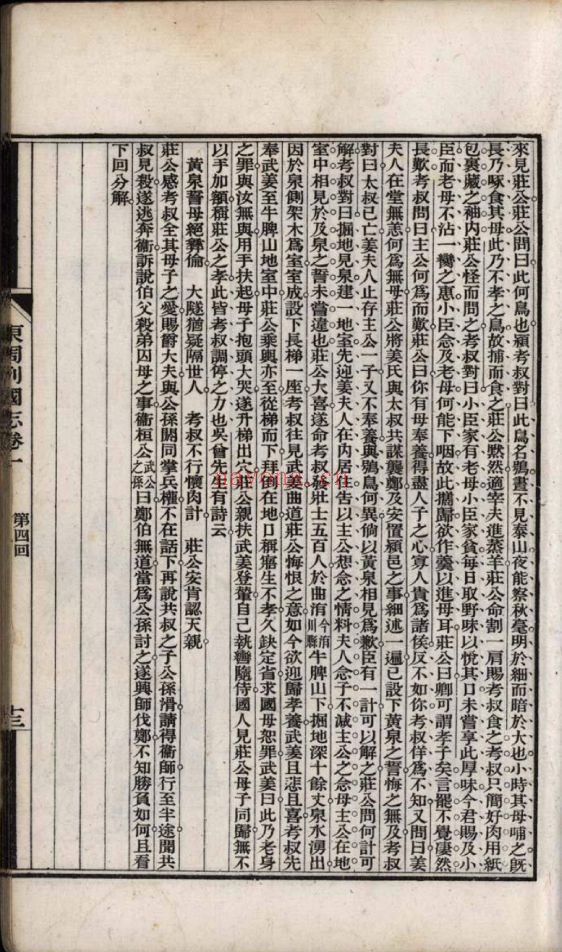 來見莊公莊公問曰此何鳥也潁考叔對曰此鳥名鴞晝不見泰山夜能察秋毫明於細而暗於大也小時其母哺之旣
長乃啄食其母此乃不孝之鳥故捕而食之莊公默然適宰夫進蒸羊莊公命割一肩賜考叔食之考叔只簡好肉用紙
包裹藏之袖內莊公怪而問之考叔對曰小臣家有老母小臣家貧每日取野味以悅其口未嘗享此厚味今君賜及小
臣而老母不沾一臠之惠小臣念及老母何能下咽故此攜歸欲作羹以進母耳莊公曰卿可謂孝子矣言罷不覺凄然
長歎考叔問曰主公何爲而歎莊公曰你有母奉養得盡人子之心寡人貴爲諸侯反不如你考叔佯爲不知又問曰姜
夫人在堂無恙何爲無母莊公將姜氏與太叔共謀襲鄭及安置潁邑之事細述一遍已設下黃泉之誓悔之無及考叔
對曰太叔已亡姜夫人止存主公一子又不奉養與鴞鳥何異倘以黃泉相見爲歉臣有一計可以解之莊公問何計可
解考叔對曰掘地見泉建一地室先迎姜夫人在內居住告以主公想念之情料夫人念子不減主公之念母主公在地
室中相見於及泉之誓未嘗違也莊公大喜遂命考叔發壯士五百人於曲洧今洧川縣牛脾山下掘地深十餘丈泉水湧出
因於泉側架木爲室室成設下長梯一座考叔往見武姜曲道莊公悔恨之意如今欲迎歸孝養武姜且悲且喜考叔先
奉武姜至牛脾山地室中莊公乘輿亦至從梯而下拜倒在地口稱寤生不孝久缺定省求國母恕罪武姜曰此乃老身
之罪與汝無與用手扶起母子抱頭大哭遂升梯出穴莊公親扶武姜登輦自己執轡隨侍國人見莊公母子同歸無不
以手加額稱莊公之孝此皆考叔調停之力也吳曾先生有詩云
黃泉誓母絕彝倫　大隧猶疑隔世人　考叔不行懷肉計　莊公安肯認天親
莊公感考叔全其母子之愛賜爵大夫與公孫閼同掌兵權不在話下再說共叔之子公孫滑請得衞師行至半途聞共
叔見殺遂逃奔衞訴說伯父殺弟囚母之事衞桓公武公之孫曰鄭伯無道當爲公孫討之遂興師伐鄭不知勝負如何且看
下回分解
東周列國志卷一
第四回
十三